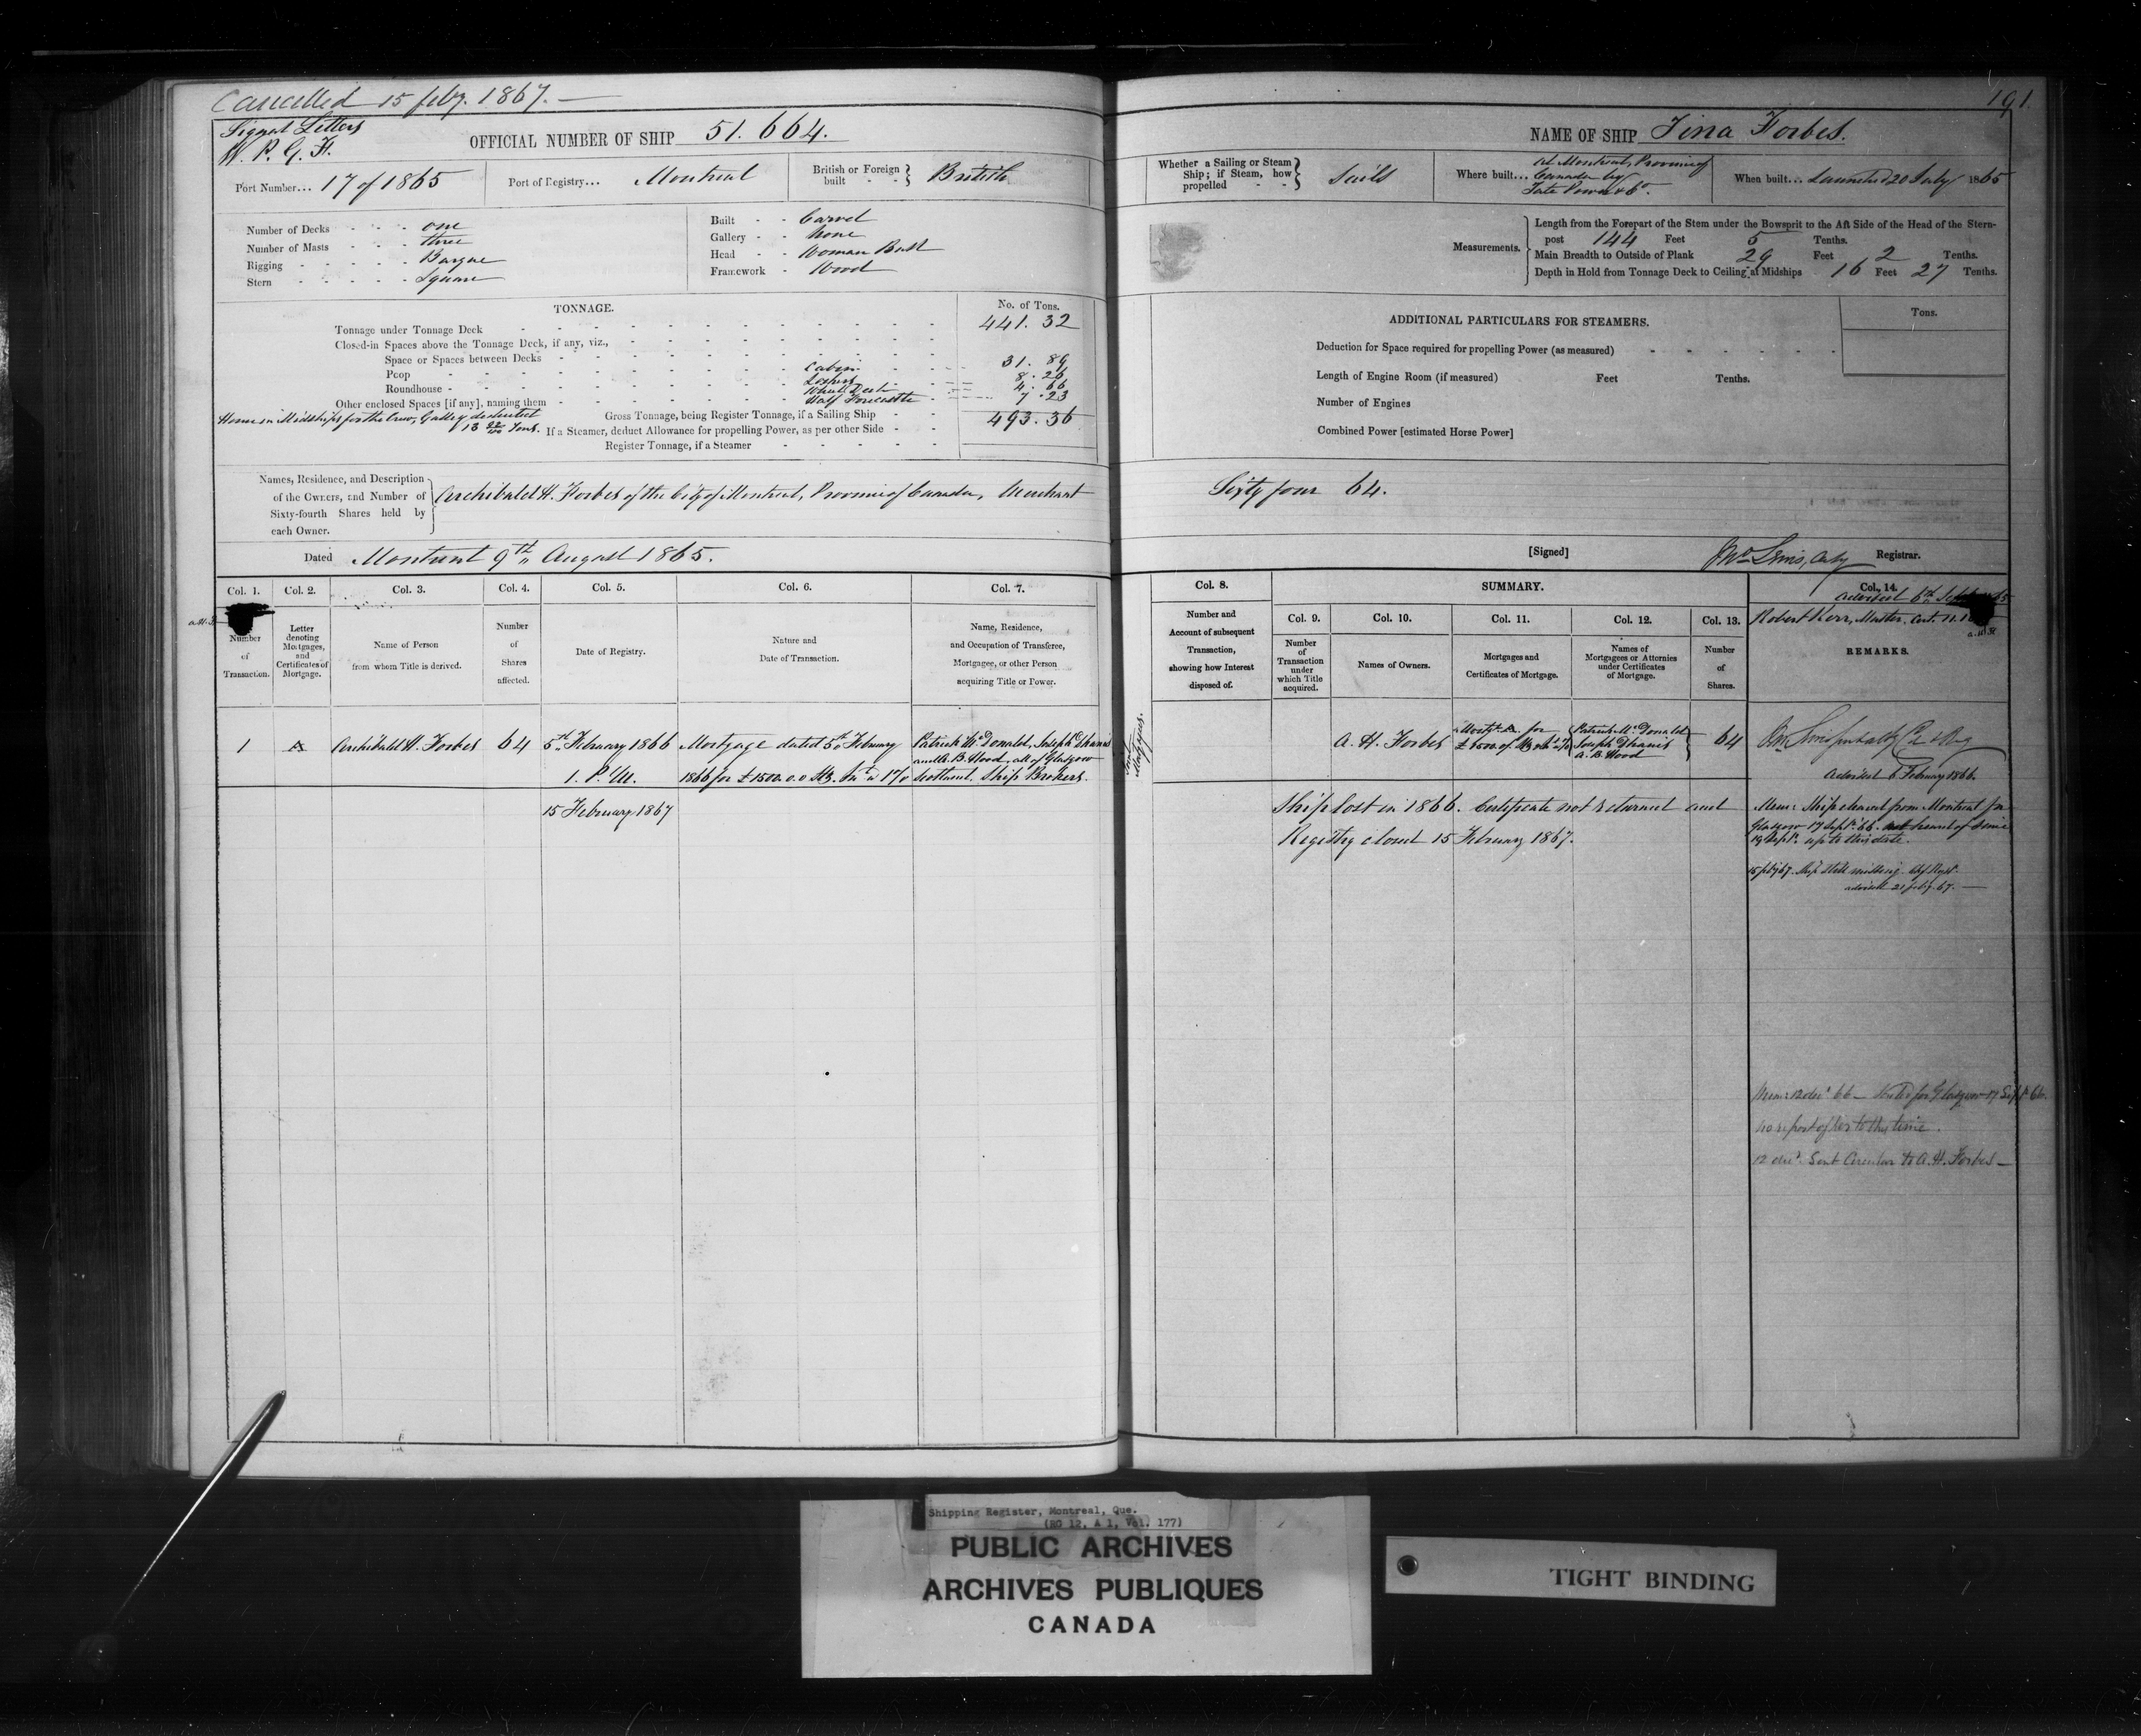 Cancelled 15 feby. 1867.—
191.
Signal Letters
W. P. G. H.
OFFICIAL NUMBER OF SHIP 51.664.
Port Number... 17 of 1865
Port of Registry... Montreal
British or Foreign built - - British
Number of Decks - - - one
Number of Masts - - - three
Rigging - - - - - Barque
Stern - - - - - Square
Built - - Carvel
Gallery - - None
Head - - Woman Bust
Framework - Wood
TONNAGE.
No. of Tons.
Tonnage under Tonnage Deck 441.32
Closed-in Spaces above the Tonnage Deck, if any, viz.,
Space or Spaces between Decks
Poop Cabin 31.89
Roundhouse 8.26
Wheel 4.66
Other enclosed Spaces [if any], naming them Half Forecastle 7.23
House in Midships for the Crew, Galley deducted
13 22/100 Tons.
Gross Tonnage, being Register Tonnage, if a Sailing Ship 493.36
If a Steamer, deduct Allowance for propelling Power, as per other Side
Register Tonnage, if a Steamer
Names, Residence, and Description
of the Owners, and Number of
Sixty-fourth Shares held by
each Owner.
Archibald H. Forbes of the City of Montreal, Province of Canada, Merchant
Dated Montreal 9th August 1865.
Col. 1.
Col. 2.
Col. 3.
Col. 4.
Col. 5.
Col. 6.
Col. 7.
Number
of
Transaction.
Letter
denoting
Mortgages,
and
Certificates of
Mortgage.
Name of Person
from whom Title is derived.
Number
of
Shares
affected.
Date of Registry.
Nature and
Date of Transaction.
Name, Residence,
and Occupation of Transferee,
Mortgagee, or other Person
acquiring Title or Power.
1 A Archibald H. Forbes 64 5th February 1866 Mortgage dated 5th February Patrick McDonald, Joseph
1. P.M. 1866 for £ and A. B. Hood, all of Glasgow
Scotland. Ship Brokers.
15 February 1867
NAME OF SHIP Tina Forbes.
Whether a Sailing or Steam
Ship; if Steam, how
propelled - -
Sails
Where built... At Montreal, Province of
Canada by
Tate Power & Co.
When built... Launched 20 July 1865
Measurements.
Length from the Forepart of the Stem under the Bowsprit to the Aft Side of the Head of the Stern-
post 144 Feet 5 Tenths.
Main Breadth to Outside of Plank 29 Feet 2 Tenths.
Depth in Hold from Tonnage Deck to Ceiling at Midships 16 Feet 27 Tenths.
ADDITIONAL PARTICULARS FOR STEAMERS.
Tons.
Deduction for Space required for propelling Power (as measured)
Length of Engine Room (if measured) Feet Tenths.
Number of Engines
Combined Power [estimated Horse Power]
Sixty four 64.
[Signed] Jno Lewis, Registrar.
Col. 8.
SUMMARY.
Col. 14.
Number and
Account of subsequent
Transaction,
showing how Interest
disposed of.
Col. 9.
Col. 10.
Col. 11.
Col. 12.
Col. 13.
Number
of
Transaction
under
which Title
acquired.
Names of Owners.
Mortgages and
Certificates of Mortgage.
Names of
Mortgagees or Attornies
under Certificates
of Mortgage.
Number
of
Shares.
Advised 6th
Robert Kerr, Master, Cert.
REMARKS.
A. H. Forbes
Patrick McDonald
Joseph
A. B. Hood
64
Advised 6 February 1866.
Ship lost in 1866. Certificate not returned and
Registry closed 15 February 1867.
Mem: Ship cleared from Montreal for
Glasgow 17 Sept. 66. not heard of since
19 Sept. up to this date.
15 feby 67. Ship still missing.
advised 21 feby 67.—
Mem: 12 decr 66— for Glasgow 17 Sept 66.
no report of her to this time.
12 decr. Sent Circular to A. H. Forbes—
Shipping Register, Montreal, Que.
(RG 12, A 1, Vol. 177)
PUBLIC ARCHIVES
ARCHIVES PUBLIQUES
CANADA
TIGHT BINDING